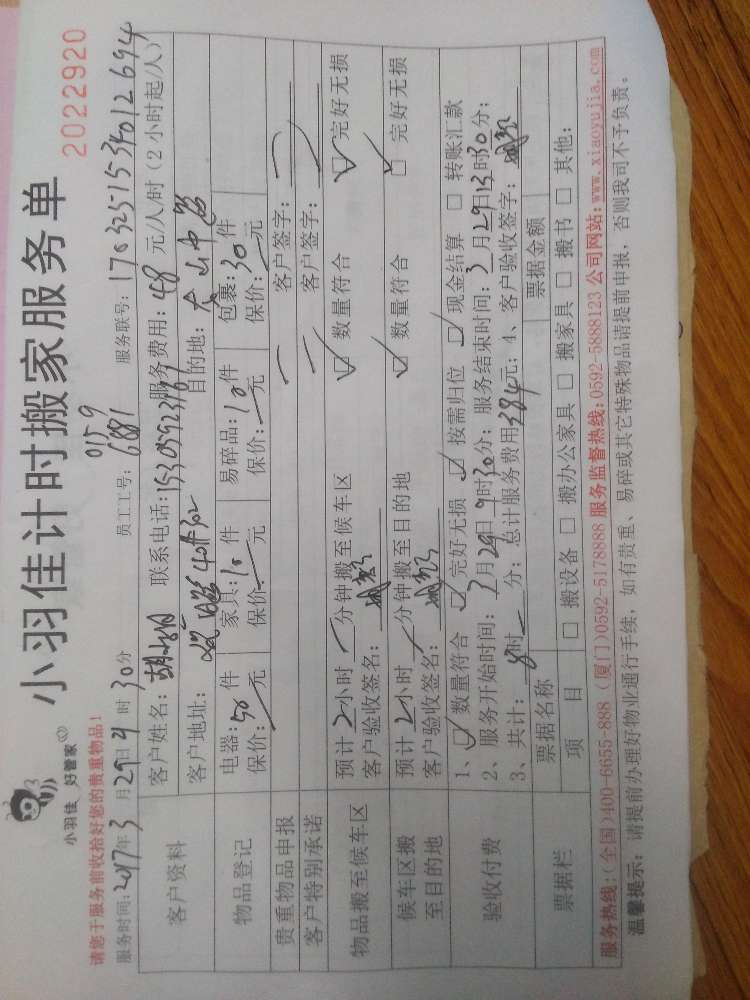 小羽佳 好管家
小羽佳计时搬家服务单
2022920
请您于服务前收拾好您的贵重物品！
0159
服务时间：2017年3月29日 时30分 员工工号：6881 服务联号：170325153401 2694
客户资料
客户姓名： 联系电话： 服务费用：48元/人/时（2小时起/人）
客户地址： 目的地：
物品登记
电器：50件 家具：10件 易碎品：10件 包裹：30件
保价：元 保价：元 保价：元 保价：元
贵重物品申报 客户签字：
客户特别承诺 客户签字：
物品搬至候车区
预计2小时 分钟搬至候车区 ☑ 数量符合 ☑ 完好无损
客户验收签名：
候车区搬至目的地
预计2小时 分钟搬至目的地 ☑ 数量符合 ☑ 完好无损
客户验收签名：
验收付费
1、☑ 数量符合 ☑ 完好无损 ☑ 按需归位 ☑ 现金结算 □ 转账汇款
2、服务开始时间：3月29日9时30分；服务结束时间：3月29日13时30分；
3、共计：8时 分；总计服务费用384元；4、客户验收签字：
票据栏
票据名称 票据金额
项目 □ 搬设备 □ 搬办公家具 □ 搬家具 □ 搬书 □ 其他：
服务热线：（全国）400-6655-888（厦门）0592-5178888 服务监督热线：0592-5888123 公司网站：www.xiaoyujia.com
温馨提示：请提前办理好物业通行手续，如有贵重、易碎或其它特殊物品请提前申报，否则我司不予负责。